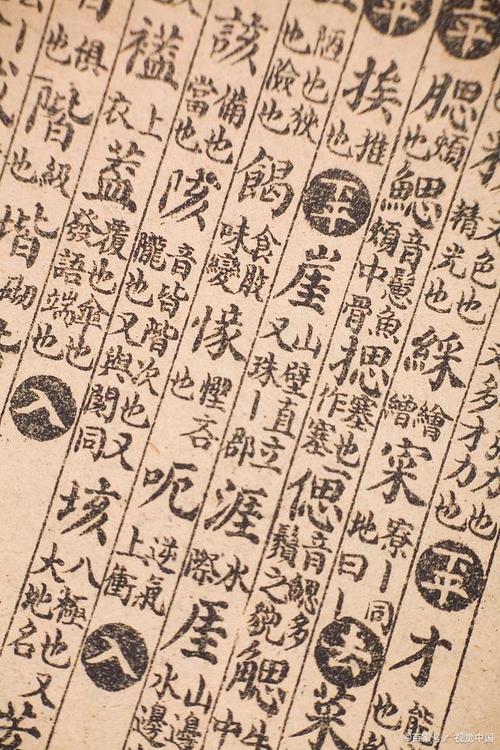 又多才力也
平 才 能也
天色也精光也 綵 繒繪 寀 寮｜同地曰｜ 去 菜
平 腮 頰也 鰓 音鬃魚頰中骨 揌 塞也作塞 偲 音鰓多鬚之貌 鰓
挨 推也 平 崖 山壁直立又珠｜部 涯 水際 厓 山邊水邊
陋也狹也險也 餲 食敗味變 慳吝也 呃 逆氣上衝 入
該 備也當也 陔 音皆階次也又隴也又與閡同 垓 八極也又大地名
上衣 蓋 覆也傘也發語端也 入
俱也 階 級也
©百家号／视觉中国